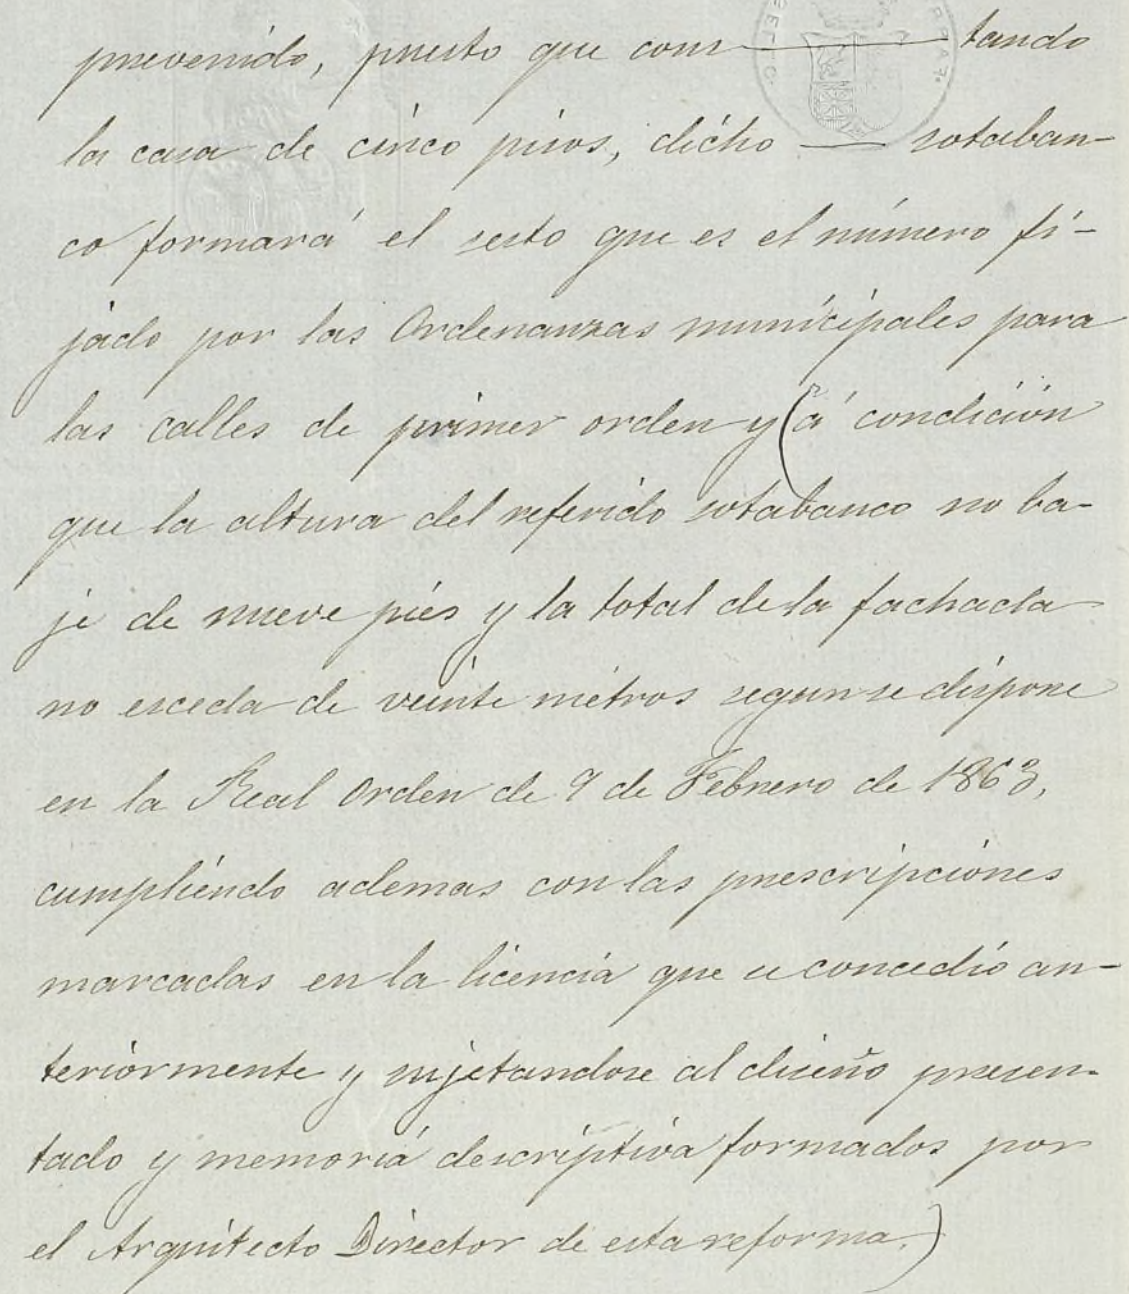 prevenido, puesto que cons———tando
la casa de cinco pisos, dicho — sotaban-
co formará el sesto que es el número fi-
jado por las Ordenanzas municipales para
las calles de primer orden y (á condición
que la altura del referido sotabanco no ba-
je de nueve piés y la total de la fachada
no esceda de veinte métros segun se dispone
en la Real Orden de 9 de Febrero de 1863,
cumpliendo ademas con las prescripciones
marcadas en la licencia que se concedió an-
teriormente y sujetandose al diseño presen-
tado y memoria descriptiva formados por
el Arquitecto Director de esta reforma.)